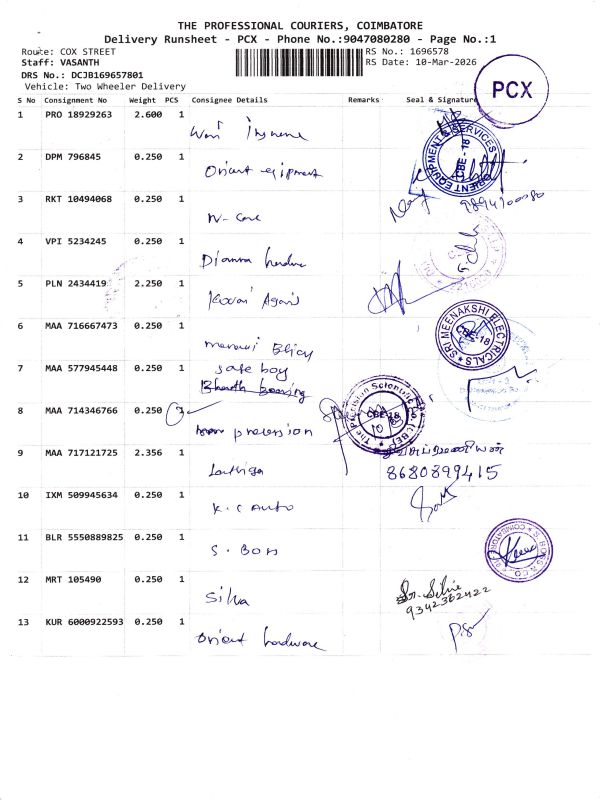 THE PROFESSIONAL COURIERS, COIMBATORE
Delivery Runsheet - PCX - Phone No.:9047080280 - Page No.:1
Route: COX STREET
RS No.: 1696578
Staff: VASANTH
RS Date: 10-Mar-2026
DRS No.: DCJB169657801
Vehicle: Two Wheeler Delivery
PCX
S No Consignment No Weight PCS Consignee Details Remarks Seal & Signature
1 PRO 18929263 2.600 1
2 DPM 796845 0.250 1 Orient equipment
ORIENT EQUIPMENT & SERVICES CBE-18
3 RKT 10494068 0.250 1 N-Care
4 VPI 5234245 0.250 1 Dianna
5 PLN 2434419 2.250 1 Kovai
6 MAA 716667473 0.250 1
SRI MEENAKSHI ELECTRICALS CBE-18
7 MAA 577945448 0.250 1 safe boy
8 MAA 714346766 0.250 precession
The Precision Scientific Co. (CBE) CBE-18
9 MAA 717121725 2.356 1
8680899415
10 IXM 509945634 0.250 1 K.C Auto
11 BLR 5550889825 0.250 1 S. Bors
12 MRT 105490 0.250 1 Silva
9342362422
13 KUR 6000922593 0.250 1 Orient hardware